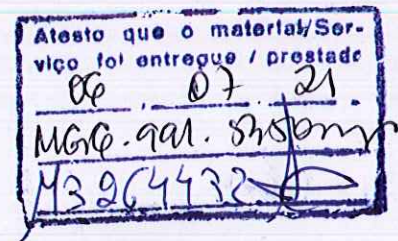 Atesto que o material/Ser-
viço foi entregue / prestado
06 . 07 . 21
M3264432